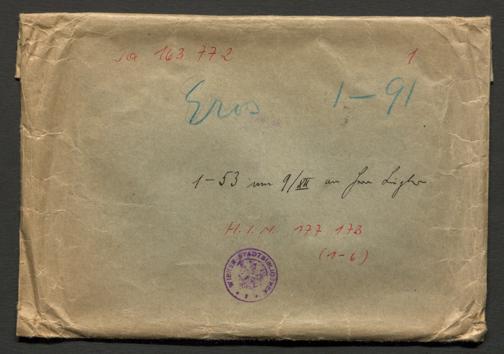 Ja 163 772 1
Eros 1–91
1–53 am 9/XII an Frau
H.I.N. 177 173
(1–6)
WIENER STADTBIBLIOTHEK